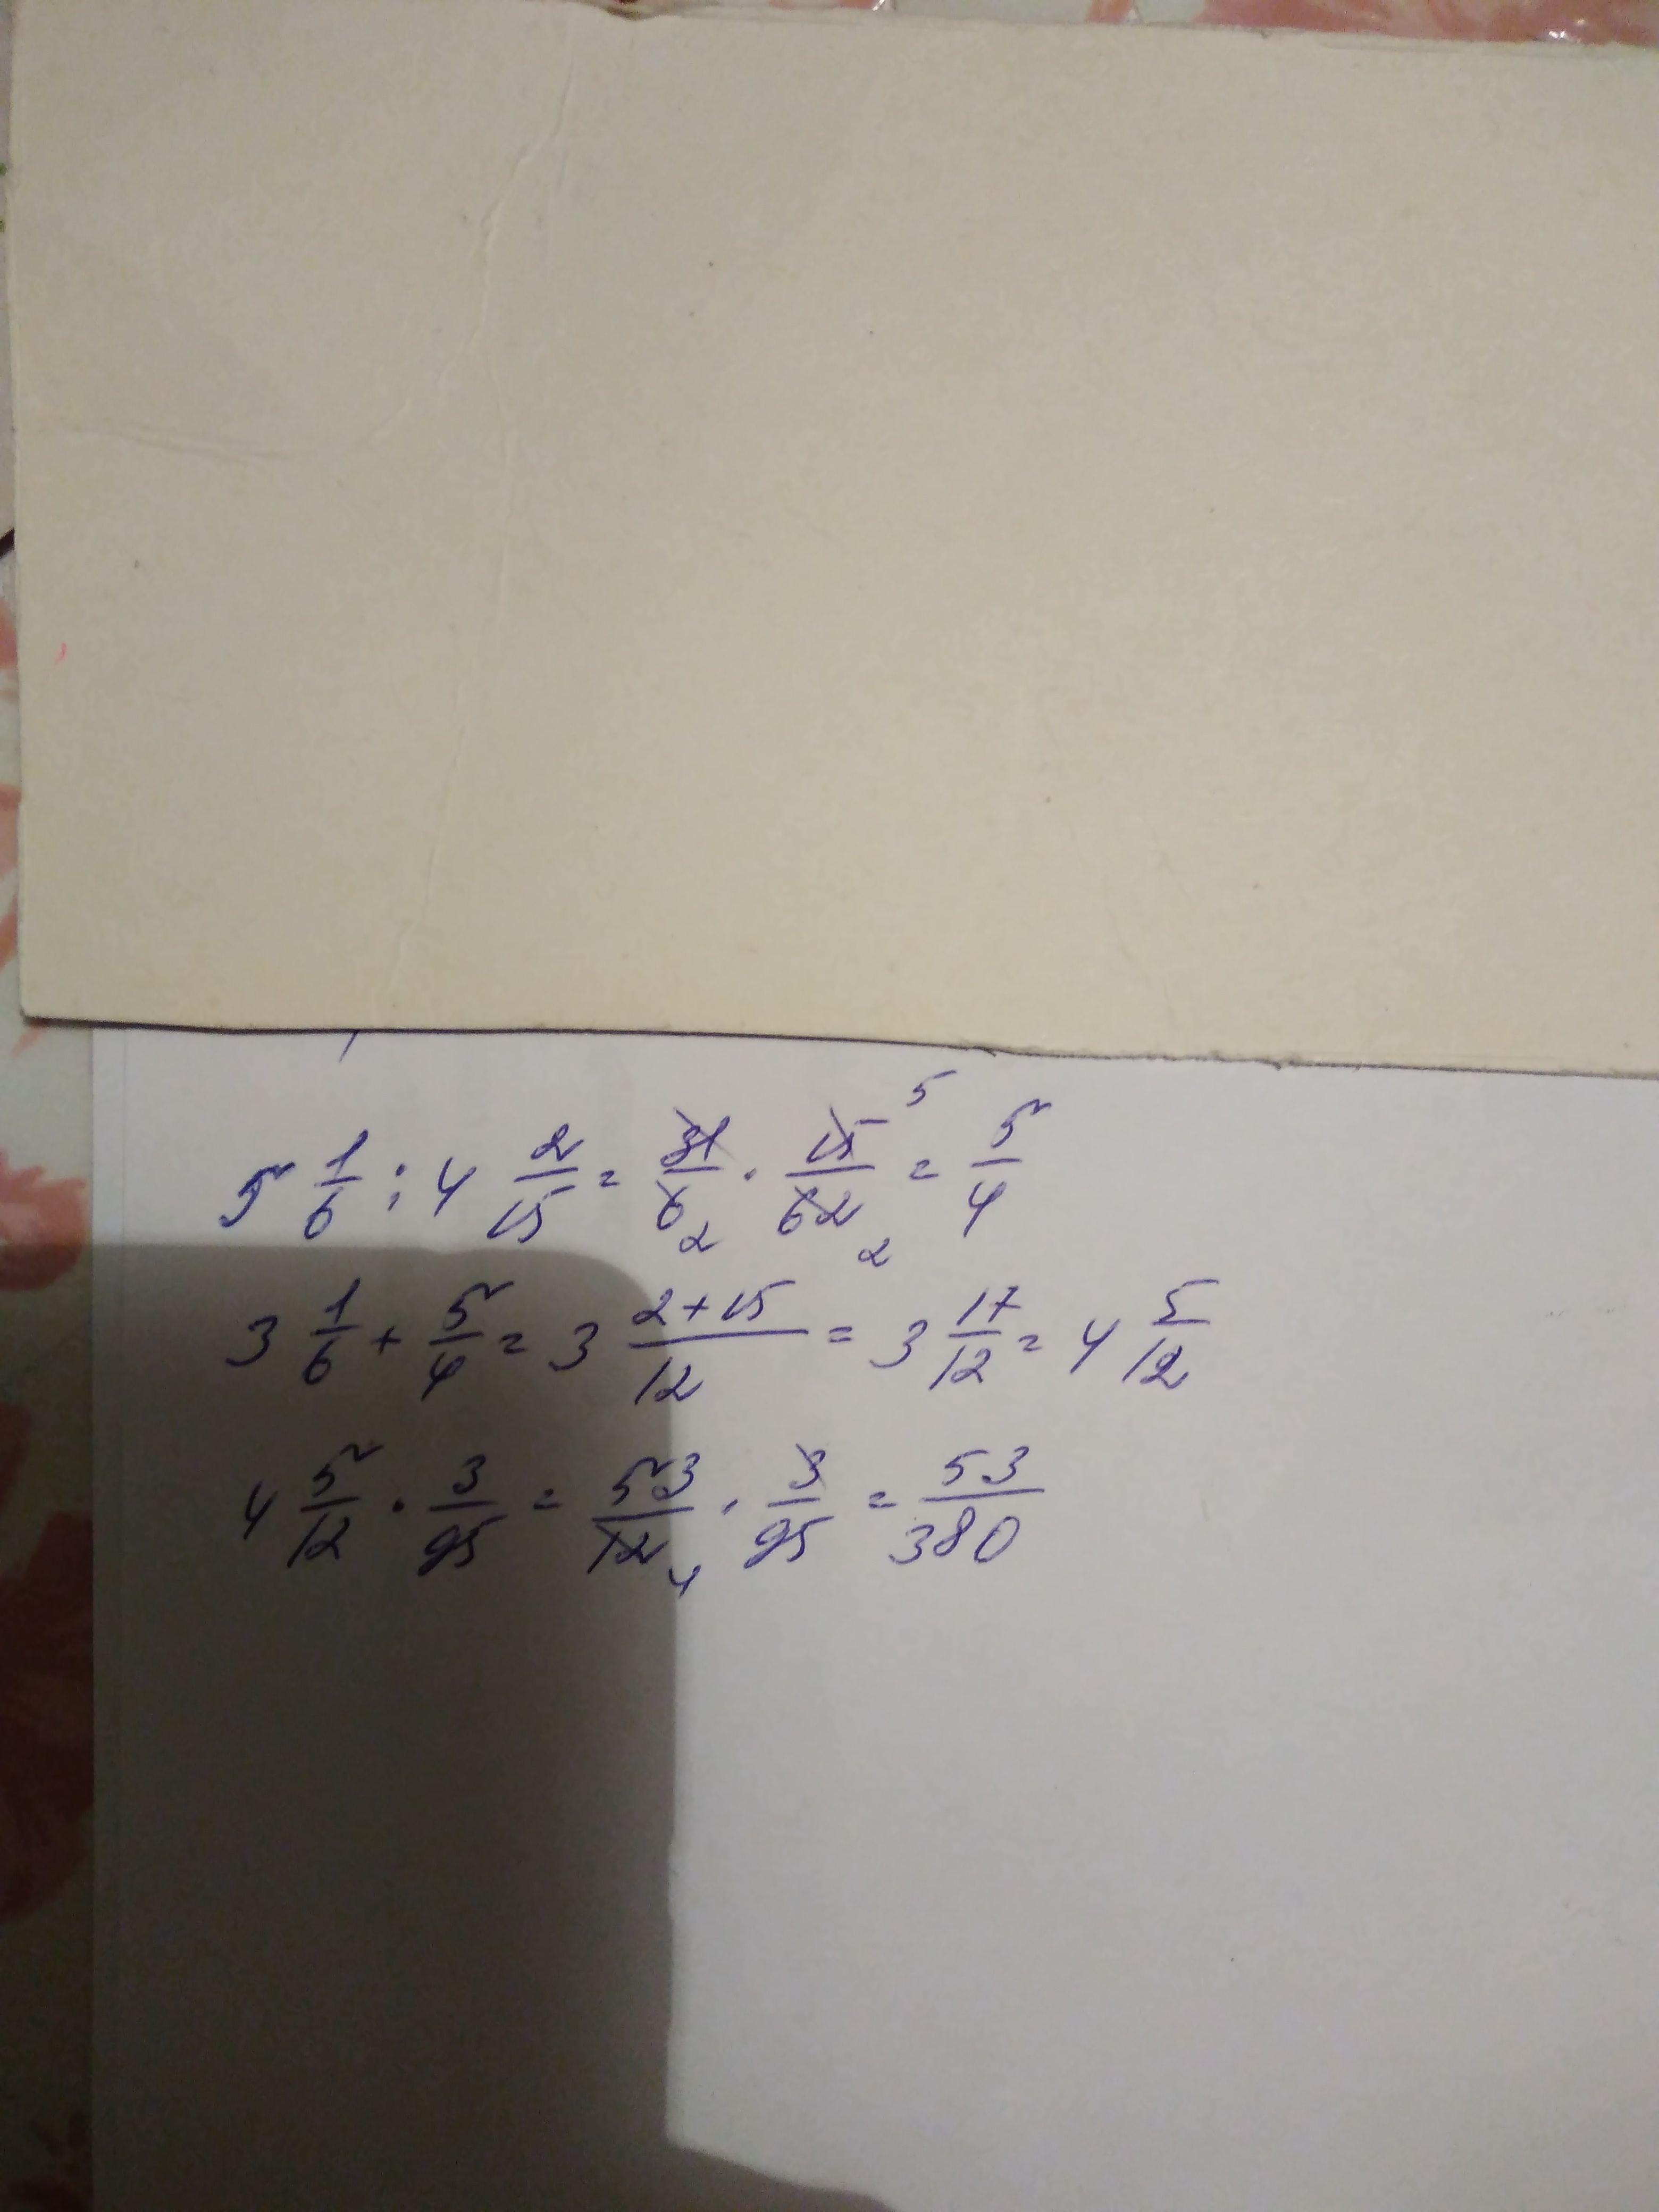 5 1/6 : 4 2/15 = 31/6 2 · 15/62 5 2 = 5/4
3 1/6 + 5/4 = 3 2+15/12 = 3 17/12 = 4 5/12
4 5/12 · 3/95 = 53/12 4 · 3/95 = 53/380